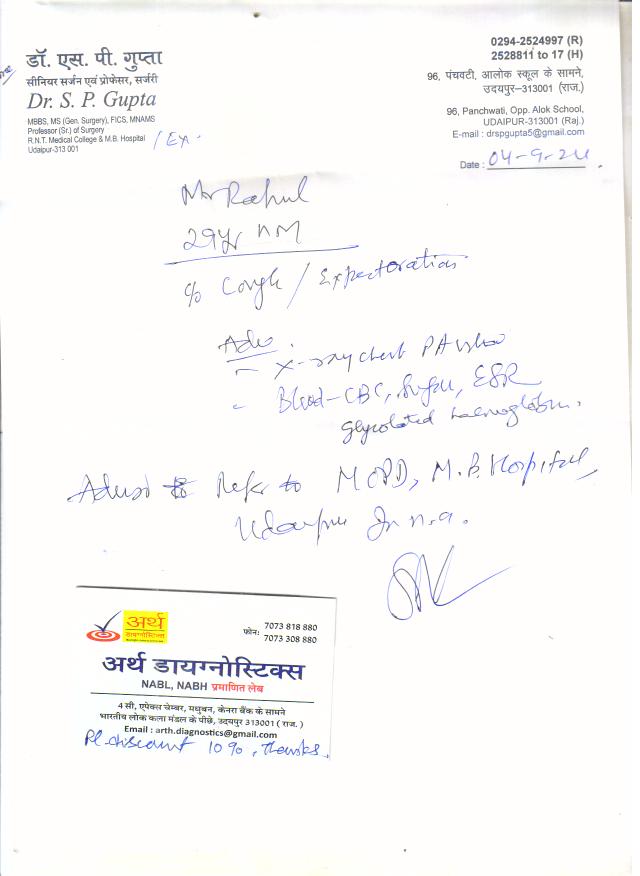 डॉ. एस. पी. गुप्ता
सीनियर सर्जन एवं प्रोफेसर, सर्जरी
Dr. S. P. Gupta
MBBS, MS (Gen. Surgery), FICS, MNAMS
Professor (Sr.) of Surgery
R.N.T. Medical College & M.B. Hospital
Udaipur-313 001
/Ex.
0294-2524997 (R)
2528811 to 17 (H)
96, पंचवटी, आलोक स्कूल के सामने,
उदयपुर–313001 (राज.)
96, Panchwati, Opp. Alok School,
UDAIPUR-313001 (Raj.)
E-mail : drspgupta5@gmail.com
Date : 04-9-24
Mr Rahul
29yr HM
c/o Cough / Expectoration
Adv.
- X-ray chest PA view
- Blood-CBC, Sugar, ESR
Glycolated haemoglobin.
Advised to Refer to MOPD, M.B. Hospital,
Udaipur for n.a.
अर्थ
डायग्नोस्टिक्स
फोन: 7073 818 880
7073 308 880
अर्थ डायग्नोस्टिक्स
NABL, NABH प्रमाणित लेब
4 सी, एपेक्स चेम्बर, मधुबन, केनरा बैंक के सामने
भारतीय लोक कला मंडल के पीछे, उदयपुर 313001 ( राज. )
Email : arth.diagnostics@gmail.com
Pl. discount 10%, thanks.